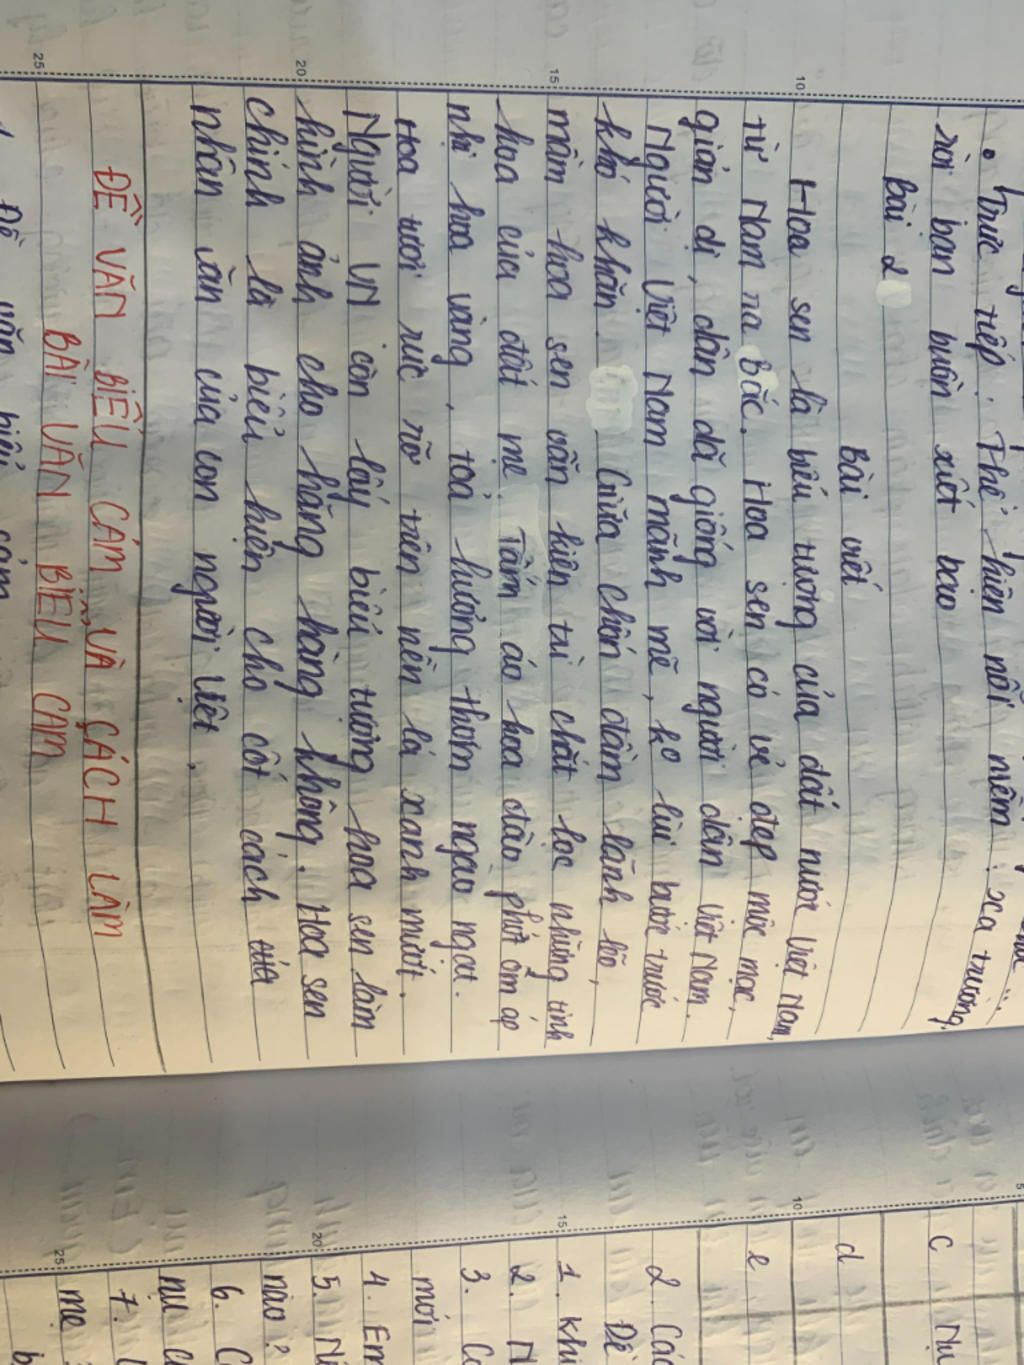 • Trực tiếp: Thể hiện nỗi niềm: xa trường,
rồi bạn buồn xiết bao
Bài 2
Bài viết
Hoa sen là biểu tượng của đất nước Việt Nam,
từ Nam ra Bắc. Hoa sen có vẻ đẹp mộc mạc,
giản dị, dân dã giống với người dân Việt Nam.
Người Việt Nam mãnh mẽ, ko lùi bước trước
khó khăn. Giữa chốn đầm lành lẽo,
mầm hoa sen vẫn kiên trì chắt lọc những tinh
hoa của đất mẹ. Tấm áo hoa đào phớt ôm ấp
nhị hoa vàng, toả hương thơm ngào ngạt.
Hoa tươi rực rỡ trên nền lá xanh mướt.
Người VN còn lấy biểu tượng hoa sen làm
hình ảnh cho hãng hàng không. Hoa sen
chính là biểu hiện cho cốt cách của
nhân văn của con người Việt.
ĐỀ VĂN BIỂU CẢM VÀ CÁCH LÀM
BÀI VĂN BIỂU CẢM
Đề văn biểu cảm
5
10
15
20
25
10
15
20
25
c Nụ
d
e
2. Các
Đề
1. Khi
2. N
3. Co
mới
4. Em
5. N
nào?
6. C
nụ c
7.
mẹ
b